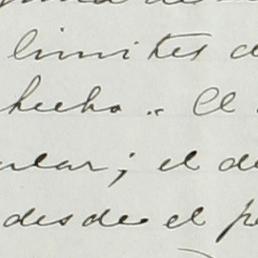 limites d
hecho. El
ular; el de
desde el p